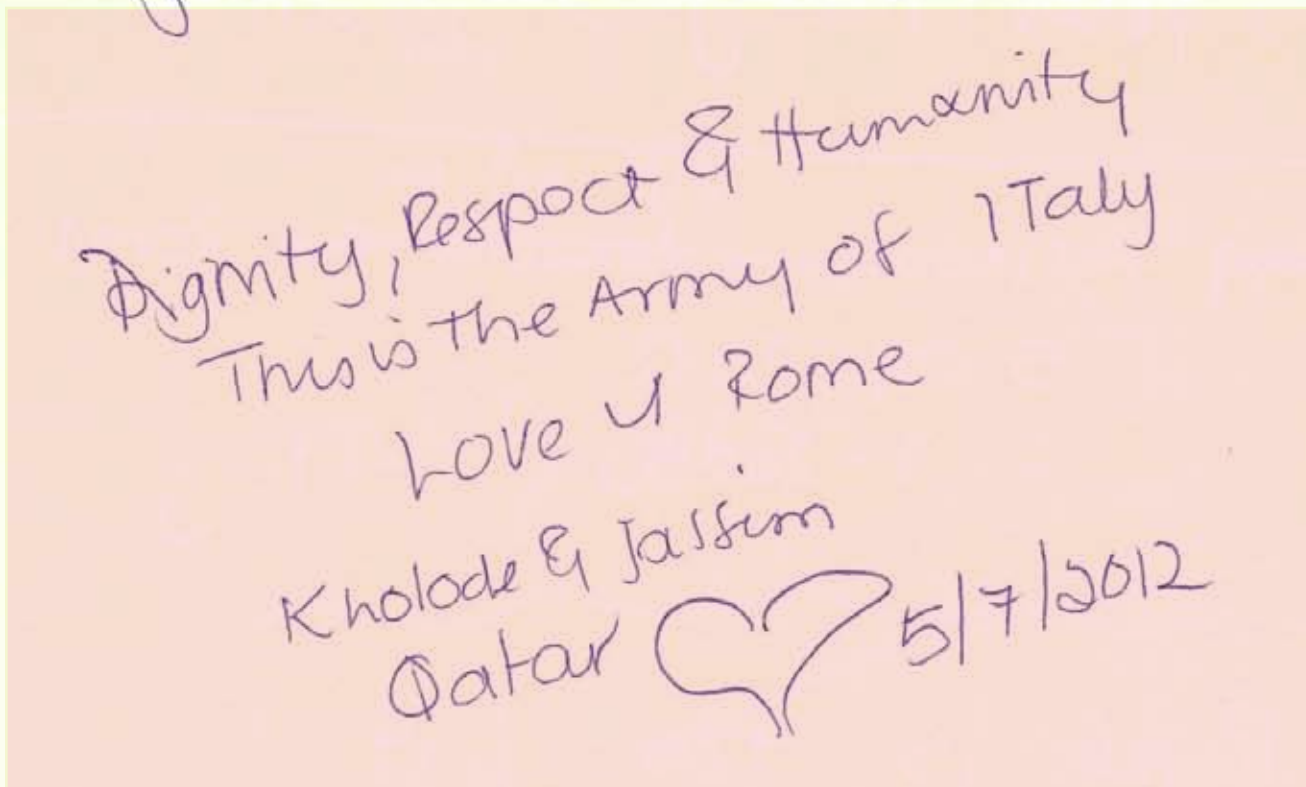 Dignity, Respect & Humanity
This is the Army of ITaly
Love U Rome
Kholode & Jassim
Qatar 5/7/2012